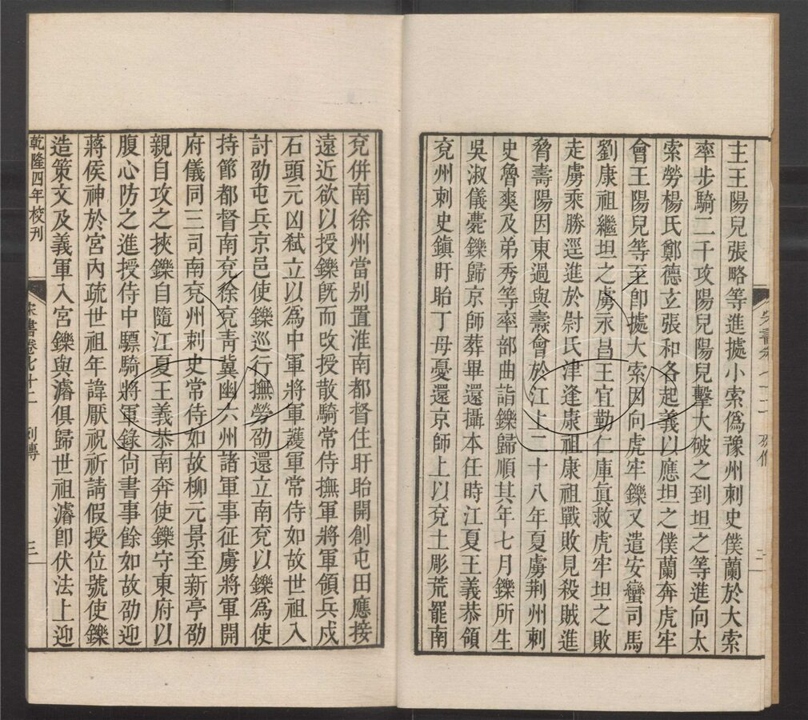 主王陽兒張略等進據小索偽豫州刺史僕蘭於大索
率步騎二千攻陽兒陽兒擊大破之到坦之等進向太
索勞楊氏鄭德玄張和各起義以應坦之僕蘭奔虎牢
會王陽兒等至卽據大索因向虎牢鑠又遣安蠻司馬
劉康祖繼坦之虜永昌王宜勤仁庫眞救虎牢坦之敗
走虜乘勝逕進於尉氏津逢康祖康祖戰敗見殺賊進
脅壽陽因東過與燾會於江上二十八年夏虜荆州刺
史魯爽及弟秀等率部曲詣鑠歸順其年七月鑠所生
吳淑儀薨鑠歸京師葬畢還攝本任時江夏王義恭領
兗州刺史鎭盱眙丁母憂還京師上以兗土彫荒罷南
兗併南徐州當别置淮南都督住盱眙開創屯田應接
遠近欲以授鑠旣而改授散騎常侍撫軍將軍領兵戍
石頭元凶弑立以爲中軍將軍護軍常侍如故世祖入
討劭屯兵京邑使鑠巡行撫勞劭還立南兗以鑠爲使
持節都督南兗徐兗靑冀幽六州諸軍事征虜將軍開
府儀同三司南兗州刺史常侍如故柳元景至新亭劭
親自攻之挾鑠自隨江夏王義恭南奔使鑠守東府以
腹心防之進授侍中驃騎將軍錄尙書事餘如故劭迎
蔣侯神於宮內疏世祖年諱厭祝祈請假授位號使鑠
造策文及義軍入宮鑠與濬俱歸世祖濬卽伏法上迎
乾隆四年校刊
宋書卷七十二 列傳
三